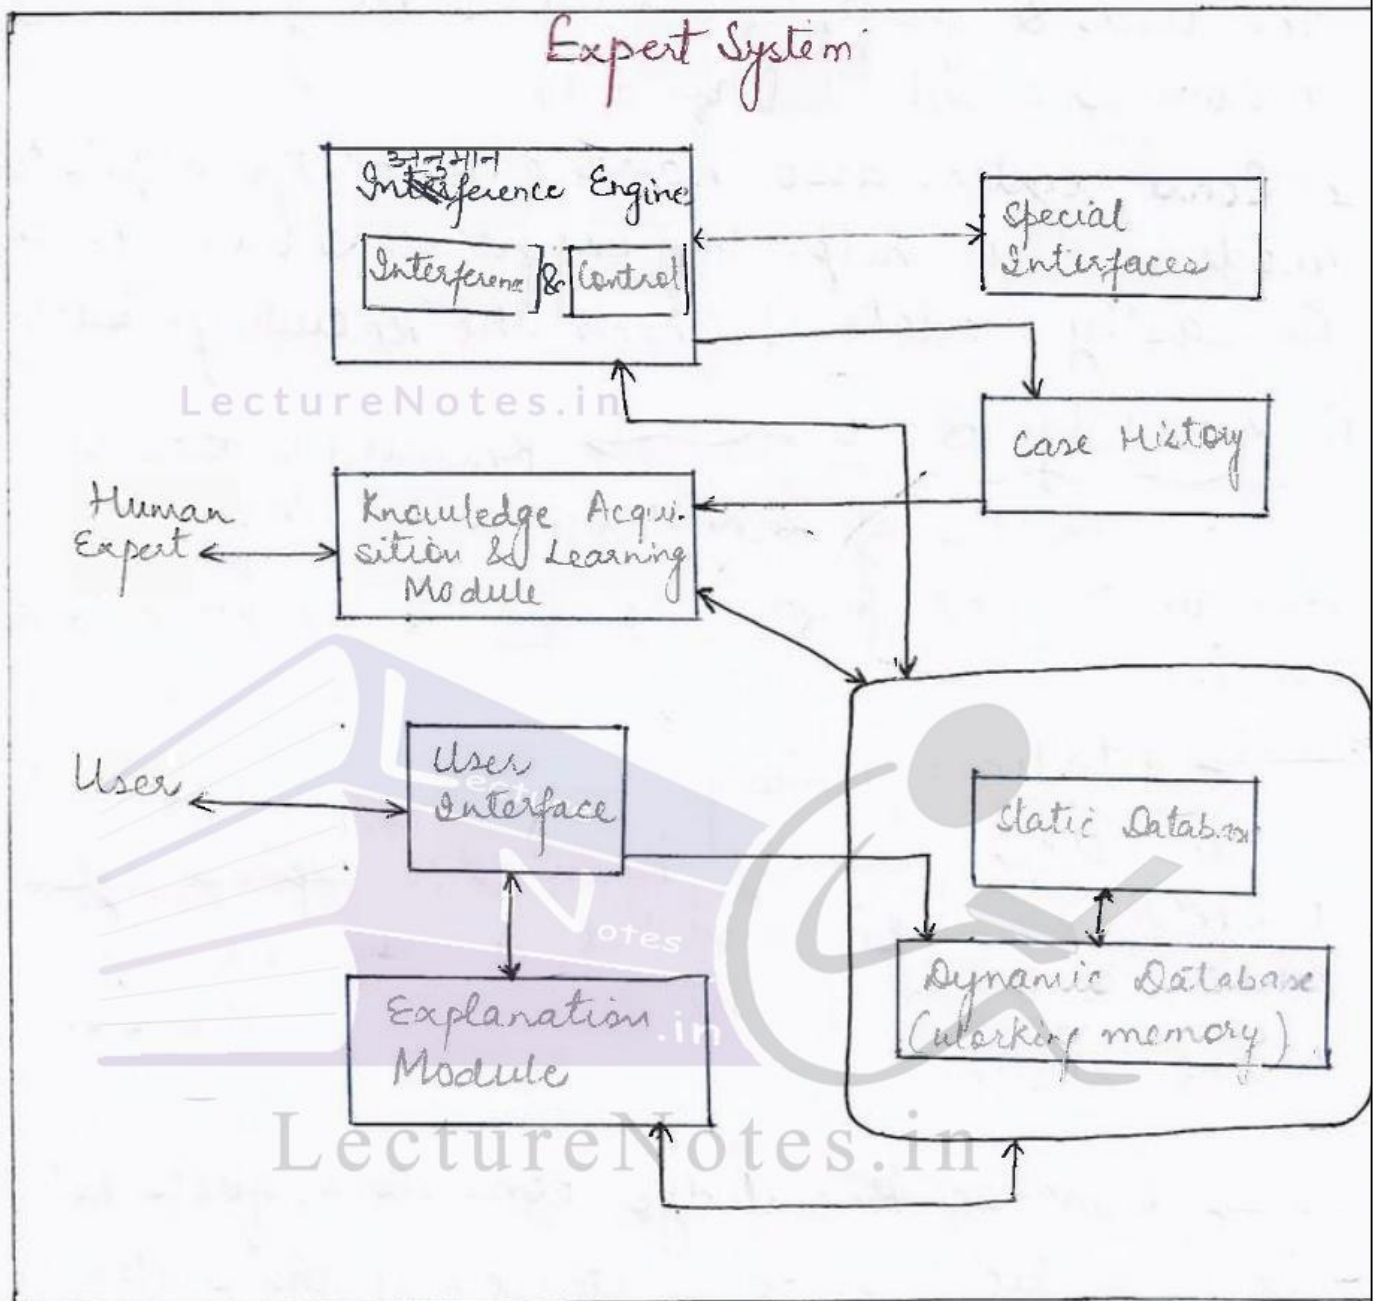 Expert System
अनुमान
Interference Engine
Interference & Control
Special
Interfaces
LectureNotes.in
Case History
Human
Expert
Knowledge Acqui-
sition & Learning
Module
User
User
Interface
Lecture
Notes
.in
Static Database
Dynamic Database
(working memory)
Explanation
Module
LectureNotes.in